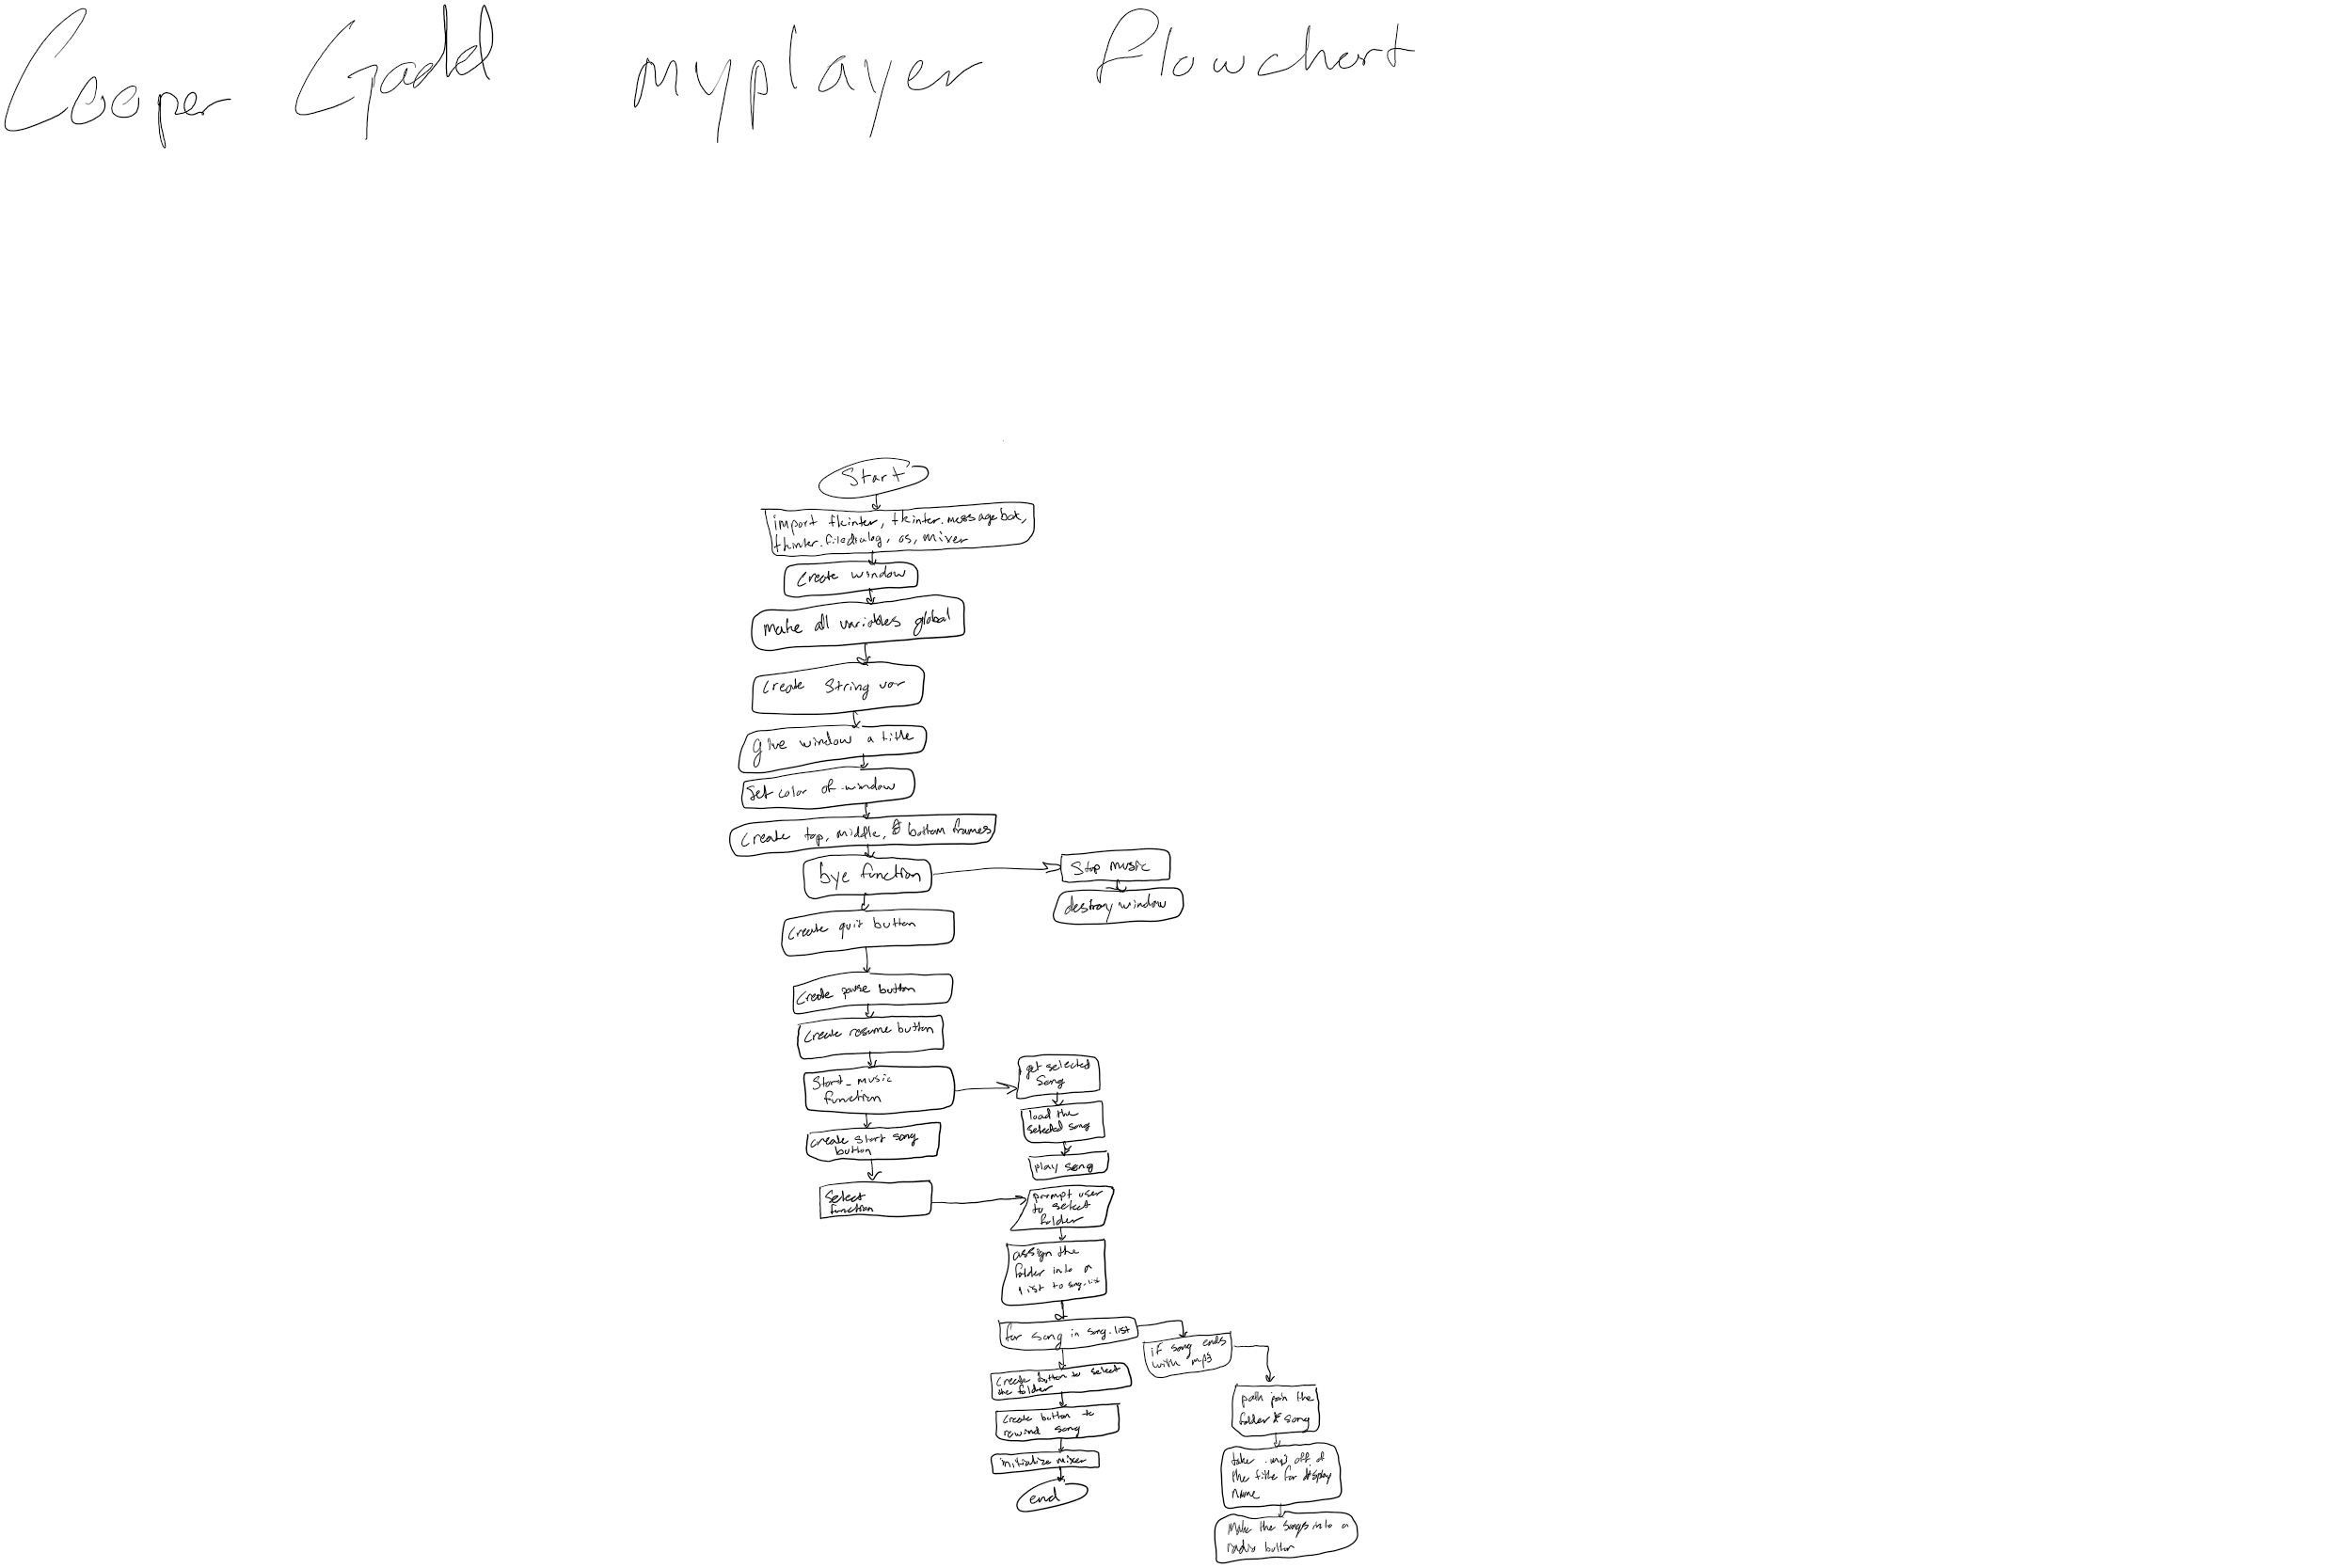 Cooper Gadd myplayer flowchart
Start
import tkinter, tkinter.messagebox,
tkinter.filedialog, os, mixer
create window
make all variables global
create string var
give window a title
set color of window
create top, middle, & bottom frames
bye function
Stop music
destroy window
create quit button
create pause button
create resume button
Start_music
function
get selected
song
load the
selected song
play song
create start song
button
Select
function
prompt user
to select
folder
assign the
folder into a
list to song_list
for song in song_list
if song ends
with mp3
path join the
folder & song
take .mp3 off of
the title for display
name
Make the songs into a
radio button
create button to select
the folder
create button to
rewind song
initialize mixer
end